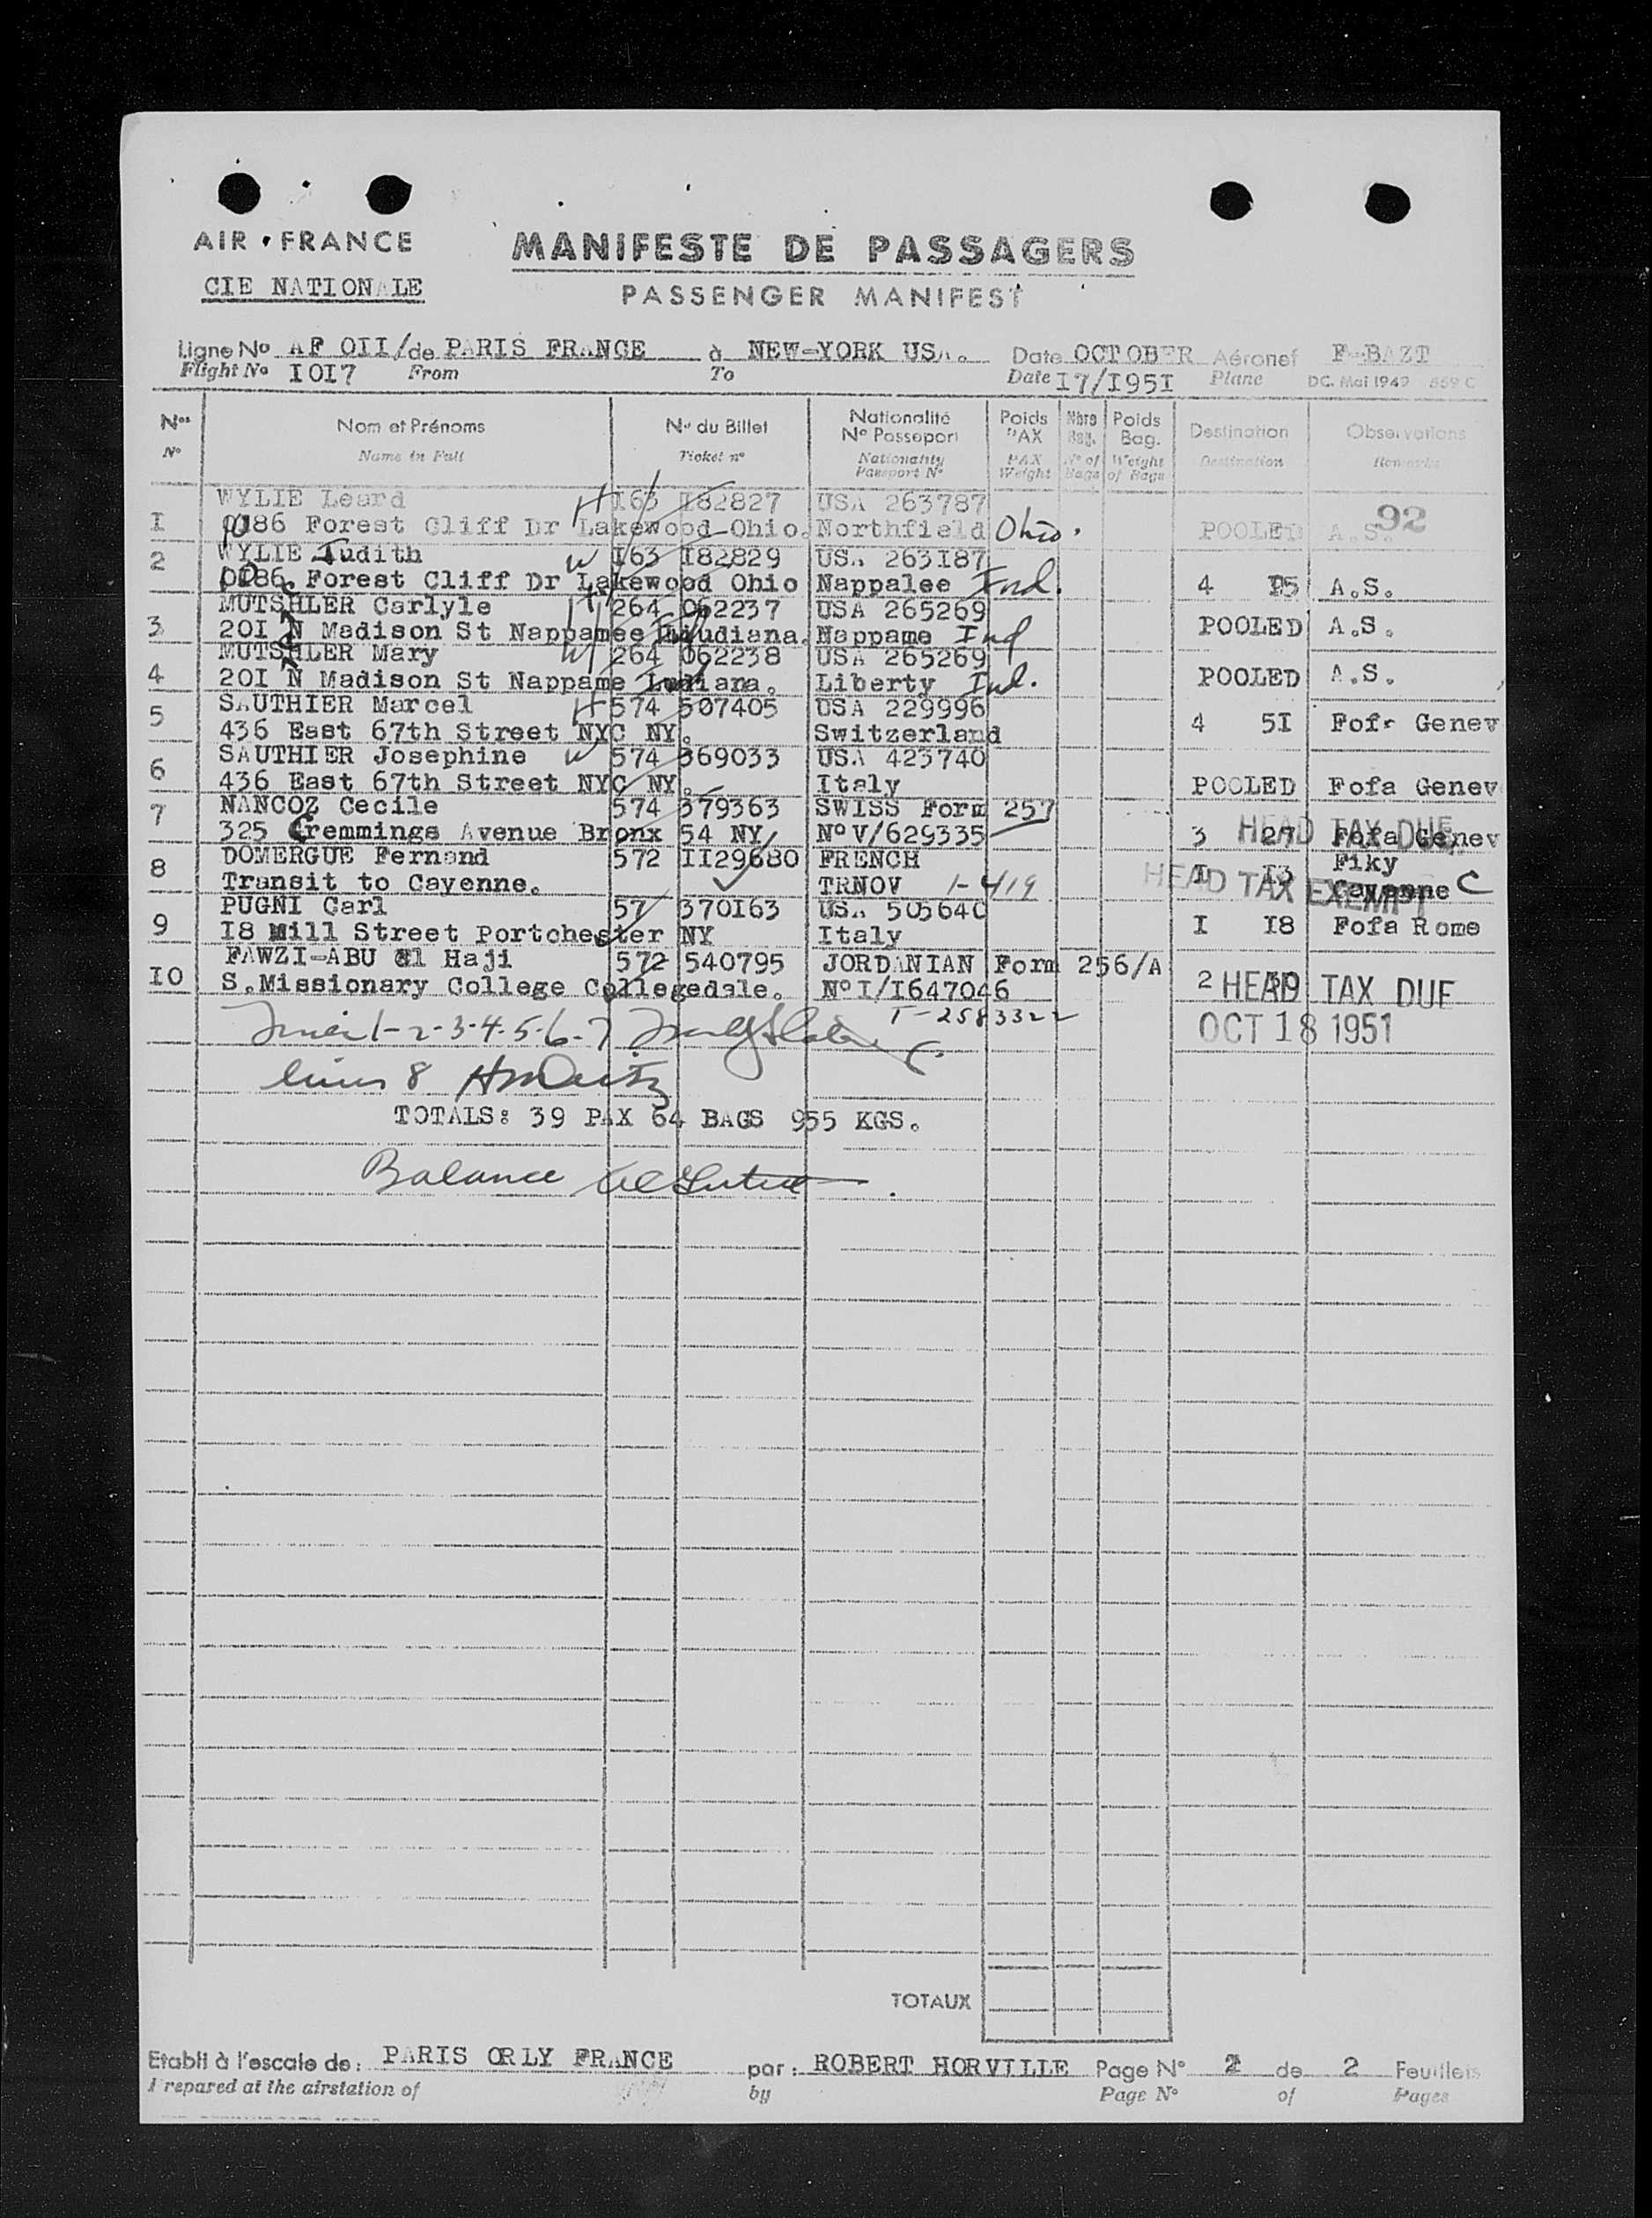 AIR FRANCE
CIE NATIONALE
MANIFESTE DE PASSAGERS
PASSENGER MANIFEST
Ligne No AF OII/ de PARIS FRANCE à NEW-YORK USA. Date OCTOBER Aéronef F-BAZT
Flight No IOI7 From To Date I7/I95I Plane DC. Mai 1949 559 C
Nos Nom et Prénoms No du Billet Nationalité No Passeport Poids PAX Nbre Bag. Poids Bag. Destination Observations
No Name in Full Ticket no Nationality Passport No PAX Weight No of Bags Weight of Bags Destination Remarks
WYLIE Leard H I63 I82827 USA 263787 92
I 86 Forest Cliff Dr Lakewood Ohio. Northfield Ohio. POOLED A.S.
WYLIE Judith W I63 I82829 USA 263I87
2 86 Forest Cliff Dr Lakewood Ohio Nappalee Ind. 4 A.S.
MUTSHLER Carlyle H 264 062237 USA 265269
3 20I N Madison St Nappamee Nappame Ind POOLED A.S.
MUTSHLER Mary W 264 062238 USA 265269
4 20I N Madison St Nappame Liberty Ind. POOLED A.S.
SAUTHIER Marcel H 574 507405 USA 229996
5 436 East 67th Street NYC NY. Switzerland 4 5I Fofa Genev
SAUTHIER Josephine W 574 369033 USA 423740
6 436 East 67th Street NYC NY. Italy POOLED Fofa Genev
NANCOZ Cecile 574 379363 SWISS Form 257
7 325 Cremmings Avenue Bronx 54 NY No V/629335 3 27 Fofa Genev
HEAD TAX DUE
DOMERGUE Fernand 572 II29680 FRENCH Fiky
8 Transit to Cayenne. TRNOV 1-419 I I3 Cayenne C
HEAD TAX EXEMPT
PUGNI Carl 57 370I63 USA 505640
9 I8 Mill Street Portchester NY Italy I I8 Fofa Rome
FAWZI-ABU El Haji 572 540795 JORDANIAN Form 256/A
IO S.Missionary College Collegedale. No I/I647046 2 HEAD TAX DUE
T-2583322
OCT 18 1951
1-2-3-4-5-6-7
8
TOTALS: 39 PAX 64 BAGS 955 KGS.
Balance
TOTAUX
Etabli à l'escale de: PARIS ORLY FRANCE par: ROBERT HORVILLE Page No 2 de 2 Feuillets
Prepared at the airstation of by Page No of Pages